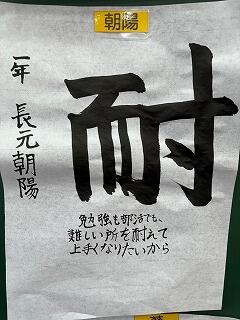 朝陽
耐
一年 長元朝陽
勉強も部活でも、
難しい所を耐えて
上手くなりたいから